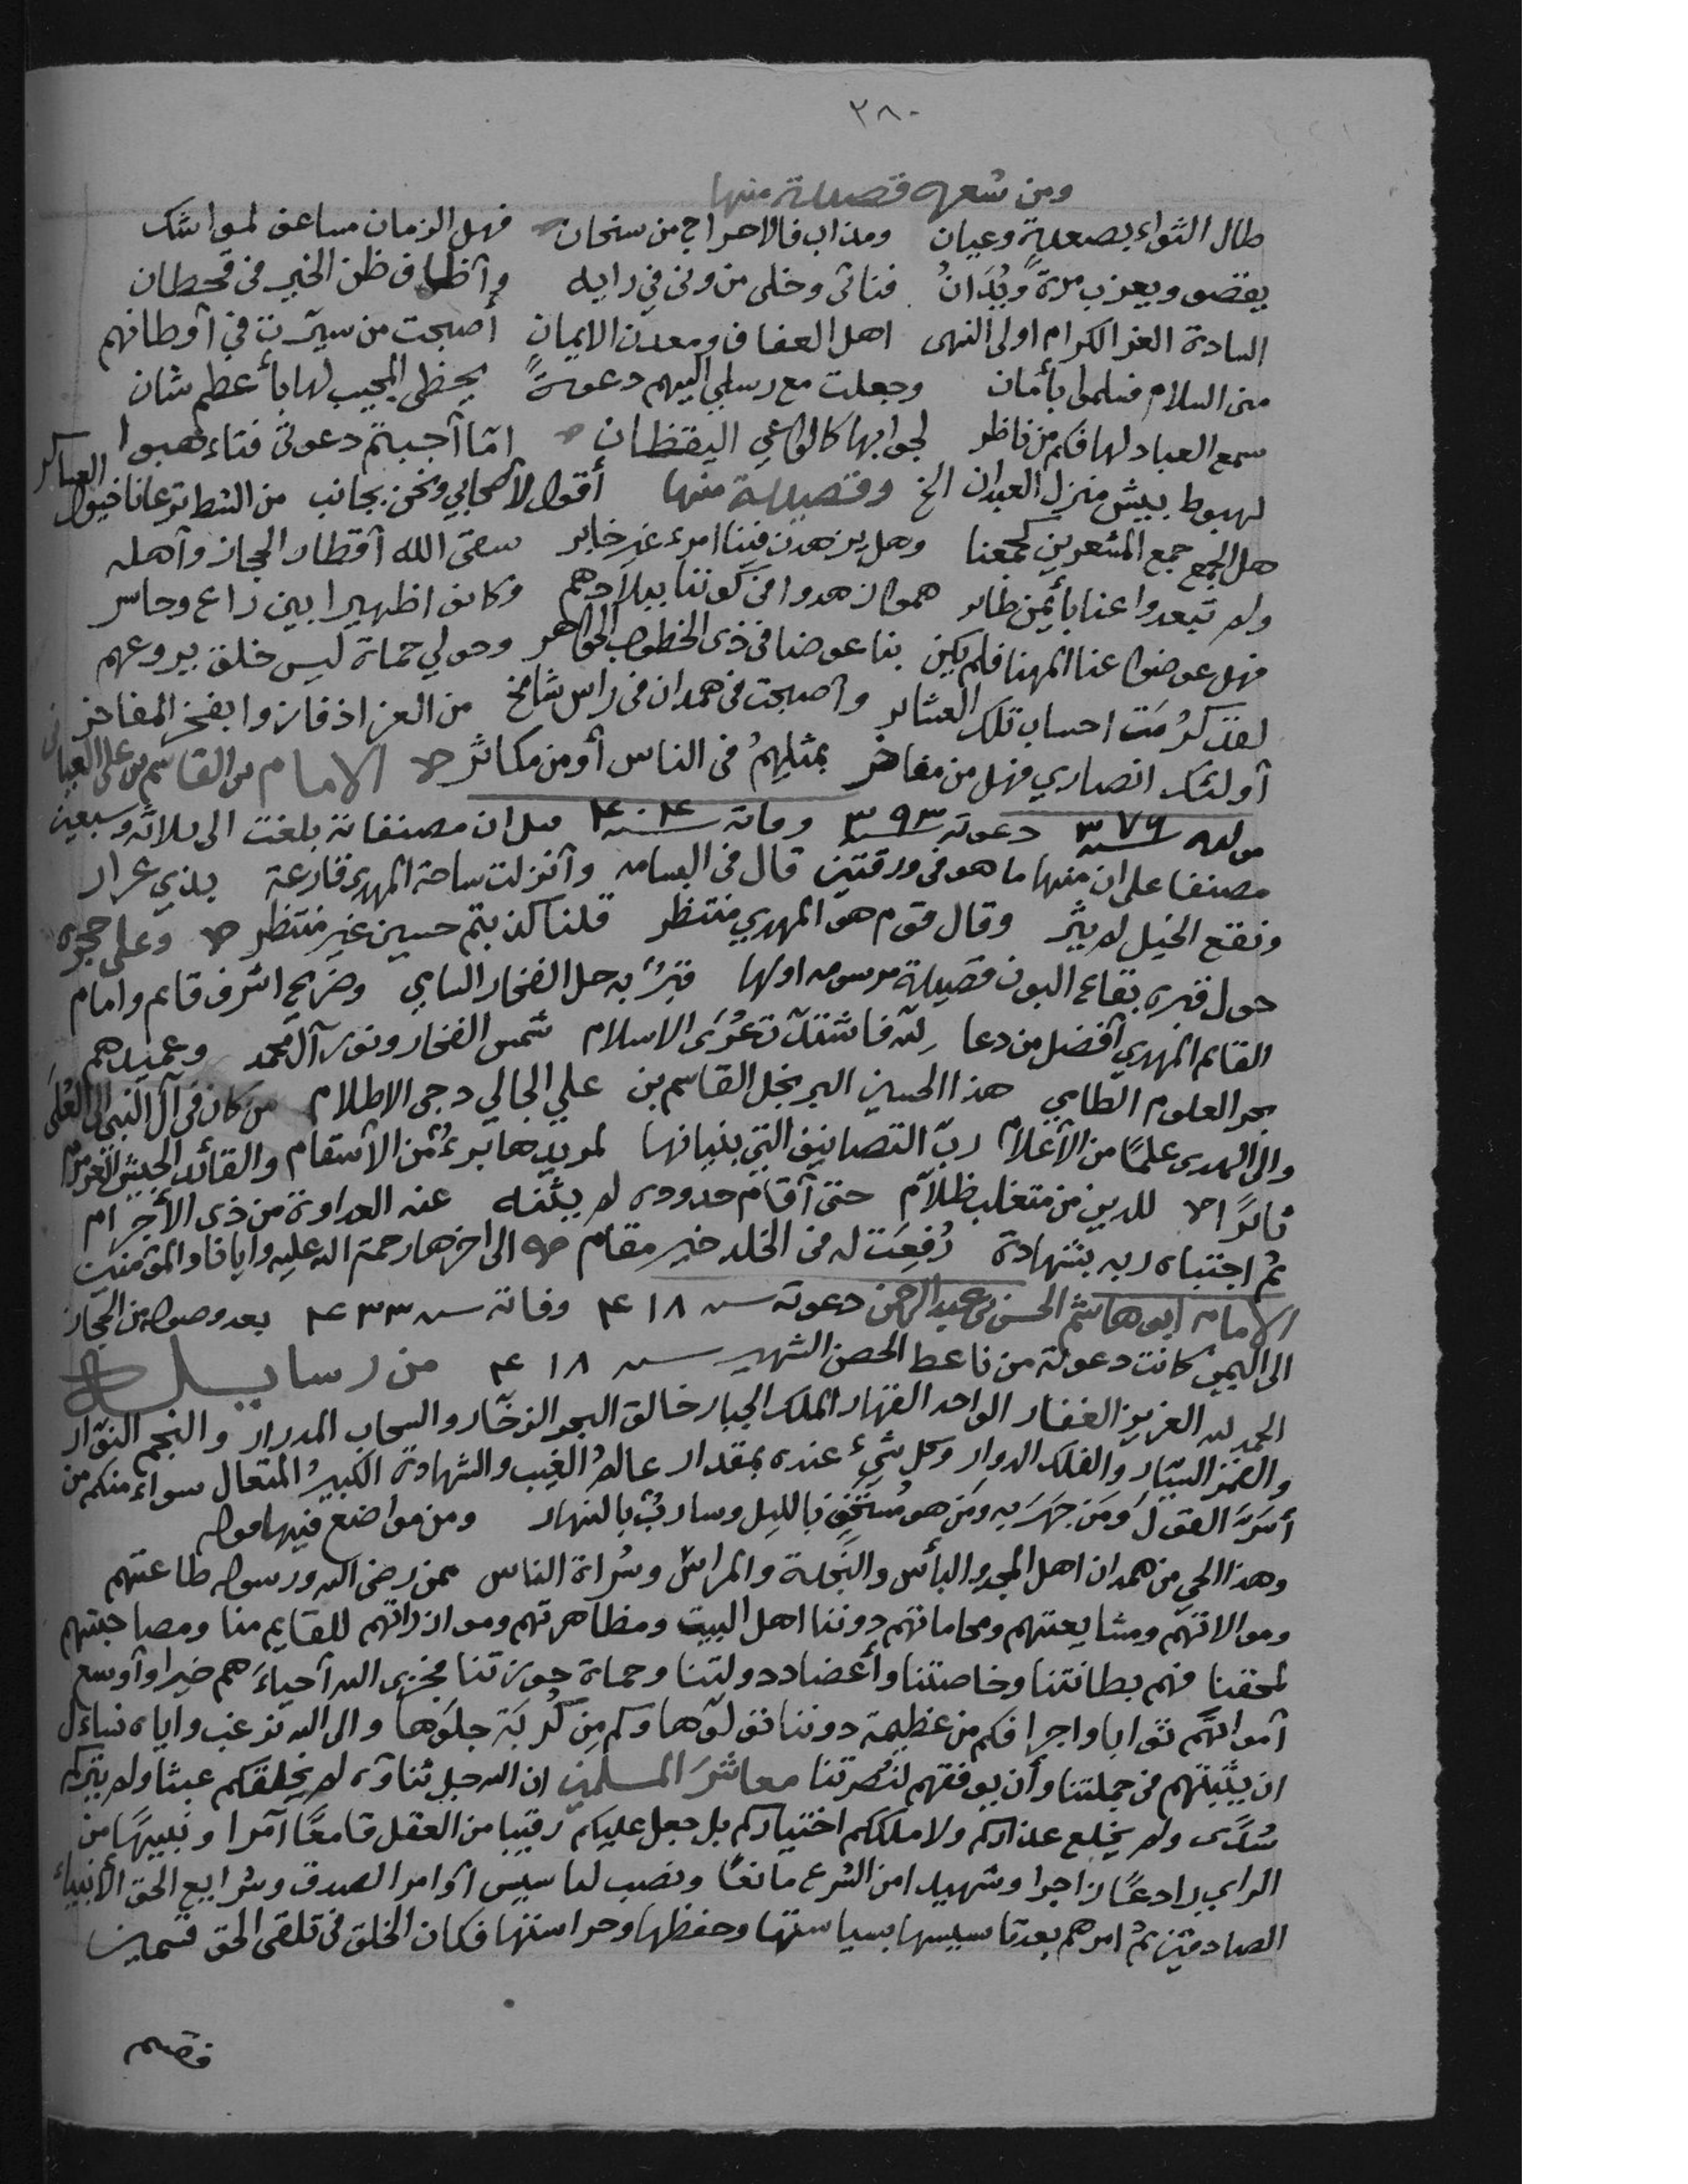 ٢٨٠
ومن شعره قصيدة منها
طال الثواء بصعدة وعيان ومذاب فالاحراج من سنحان فهل الزمان مساعف لمواشك
يقضو ويعزب مرةً ويُدَانُ فنأتى وخلى من ونى في رايه وآظاف ظن الخير في قحطان
السادة الغر الكرام اولى النهى اهل العفاف ومعدن الايمان أصبحت من سيّرت في آوطانهم
منى السلام فسلموا بأمان وجعلت مع رسلي اليهم دعوةً يحظى المجيب لها بأعظم شان
سمع العباد لها فكم من ناظر لجوابها كالواعي اليقظان امّا آجبتم دعوتى فتاءهبوا
لهبوط بيش منزل العبدان الخ وقصيدة منها أقول لأصحابي ونحن بجانب من الشط ترعانا خيول العساكر
هل الجمع جمع المشعرين كجمعنا وهل يزهدن فينا امرء غير خابر سقى الله آقطار الحجاز وآهله
ولا تبعدوا عنا بأيمن طاير همو ازهدوا في كوننا ببلادهم وكانوا ظهيرا بين راع وحاسر
فهل عوضوا عنا المهنا فلم يكن بنا عوضا في ذى الخطوب الحواهر وحولي حماة ليس خلق يروعهم
لقد كرُمَت احساب تلك العشاير واصبحت في همدان في راس شامخ من العز اذ فازوا بفخر المفاخر
آولئك انصاري فهل من مفاخر بمثلهمُ في الناس أو من مكاثر الامام بن القاسم بن علي العياني
مولده سنة ٣٧٦ دعوته سنة ٣٩٣ وفاته سنة ٤٠٤ قيل ان مصنفاته بلغت الى ثلاثة وسبعين
مصنفا على ان منها ما هو في ورقتين قال في البسامه وآنزلت ساحة المهدي قارعة بذي عرار
ونقع الخيل لم يثر وقال قوم هو المهدي منتظر قلنا كذبتم حسين غير منتظر وعلى حجرة
حول قبره بقاع البون قصيدة مرسومه اولها قبرٌ به حل الفخار السامي وضريح اشرف قايم وامام
القايم المهدي آفضل من دعا لله فاشتدّت عُرَى الاسلام شمس الفخار ونور آل محمد وعميدهم
بحر العلوم الطامي هذا الحسين البر نجل القاسم بن علي الجالي دجى الاظلام من كان في آل النبى الى العُلَى
والى الهدى علمًا من الأعلام ربّ التصانيف التي بنيانها لمريدها برءٌ من الأسقام والقائد الجيش العرمرم
ثائرًا للدين من متغلب ظلاّم حتى آقام حدوده لم يثنه عنه العداوة من ذى الأجرام
ثم اجتباه ربه بشهادة رُفِعَت له في الخلد خير مقام الى اخرها رحمة الله عليه وايانا والمؤمنين
الامام ابو هاشم الحسن بن عبد الرحمن دعوته سنه ٤١٨ وفاته سنه ٤٣٣ بعد وصوله من الحجاز
الى اليمن كانت دعوته من ناعط الحصن الشهير سنه ٤١٨ من رسايله
الحمد لله العزيز الغفار الواحد القهار الملك الجبار خالق البحر الزخّار والسحاب المدرار والنجم النوّار
والقمر السيّار والفلك الدوار وكل شيء عنده بمقدار عالمُ الغيب والشهادة الكبيرُ المتعال سواء منكم من
أسَرَّ القولَ وَمَن جهَرَ به وَمَن هو مُستَخفٍ بالليل وساربٌ بالنهار ومن مواضع فيها قوله
وهذا الحي من همدان اهل المجد والبأس والنَجدة والمراس وسُراة الناس ممن رضى الله ورسوله طاعتهم
وموالاتهم ومشايعتهم ومحاماتهم دوننا اهل البيت ومظاهرتهم وموازراتهم للقايم منا ومصاحبتهم
لمحقنا فهم بطانتنا وخاصتنا وأعضاد دولتنا وحماة حوزتنا فجزى الله آحياءَهم خيرا وآوسع
آمواتهم ثوابا واجرا فكم من عظيمة دوننا تولّوها وكم مِن كُربَة جلَوها والى الله نرغب واياه نساءل
ان يثبتهم في جملتنا وأن يوفقهم لنُصرتنا معاشرَ المسلمين ان الله جل ثناؤه لم يخلقكم عبثا ولم يترككم
سُدًى ولم يخلع عذاركم ولا ملككم اختياركم بل جعل عليكم رقيبا من العقل قامعًا آمرا ونبيهًا من
الراي رادعًا زاجرا وشهيدا من الشرع مانعًا ونصب لتاسيس آوامر الصدق وشرايع الحق الأنبياء
الصادقين ثم امرهم بعد تاسيسها بسياستها وحفظها وحراستها فكان الخلق في تلقى الحق قسمين
فقسم